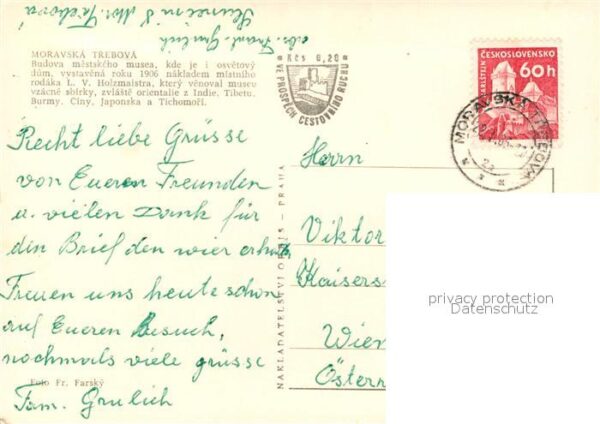 Sluneční 8 Mor. Třebová
MORAVSKÁ TŘEBOVÁ
Budova městského musea, kde je i osvětový
dům, vystavěná roku 1906 nákladem místního
rodáka L. V. Holzmaistra, který věnoval museu
vzácné sbírky, zvláště orientalie z Indie, Tibetu,
Burmy, Číny, Japonska a Tichomoří.
Kčs 0,20
VE PROSPĚCH CESTOVNÍHO RUCHU
ČESKOSLOVENSKO
60h
KARLŠTEJN
MORAVSKÁ TŘEBOVÁ
Recht liebe Grüsse
von Eueren Freunden
u. vielen Dank für
den Brief den wier erhielt
Freuen uns heute schon
auf Eueren Besuch,
nochmals viele grüsse
Fam. Grulich
Foto Fr. Farský
NAKLADATELSTVÍ ORBIS - PRAHA
Herrn
Viktor
Kaisers
Wien
Österr
privacy protection
Datenschutz